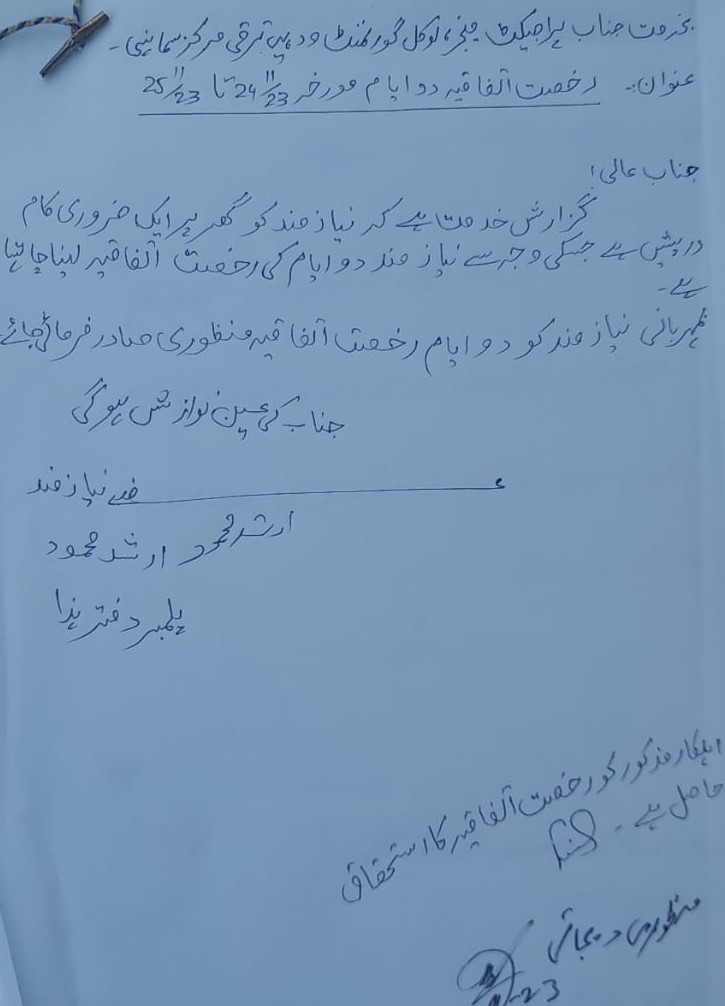 بخدمت جناب پراجیکٹ منیجر، لوکل گورنمنٹ و دیہی ترقی مرکز سماہنی۔
عنوان:۔ رخصت اتفاقیہ دو ایام مورخہ 24/11/23 تا 25/11/23
جناب عالی!
گزارش خدمت ہے کہ نیازمند کو گھر پر ایک ضروری کام
درپیش ہے جسکی وجہ سے نیازمند دو ایام کی رخصت اتفاقیہ لینا چاہتا
ہے۔
مہربانی نیازمند کو دو ایام رخصت اتفاقیہ منظوری صادر فرمائی جائے
جناب کی عین نوازش ہوگی
نیازمند
ارشد محمود ارشد محمود
پلمبر دفتر ہذا
اہلکار مذکور کو رخصت اتفاقیہ کا استحقاق
حاصل ہے۔
منظوری دیجاتی